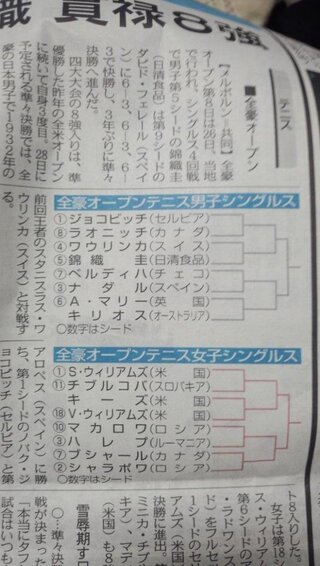 職 貫禄8強
テニス
■全豪オープン
【メルボルン共同】全豪
オープン第8日は26日、当地
で行われ、シングルス4回戦
で男子第5シードの錦織圭
(日清食品)は第9シードの
ダビド・フェレール(スペイ
ン)に6―3、6―3、6―
3で快勝し、3年ぶりに準々
決勝へ進んだ。
四大大会の8強入りは、準
優勝した昨年の全米オープン
に続いて自身3度目。28日に
予定される準々決勝では、全
豪の日本男子で1932年の
全豪オープンテニス男子シングルス
①ジョコビッチ(セルビア)
⑧ラオニッチ(カナダ)
④ワウリンカ(スイス)
⑤錦織圭(日清食品)
⑦ベルディハ(チェコ)
③ナダル(スペイン)
⑥A・マリー(英国)
キリオス(オーストラリア)
○数字はシード
前回王者のスタニスラス・ワ
ウリンカ(スイス)と対戦す
る。
全豪オープンテニス女子シングルス
①S・ウィリアムズ(米国)
⑪チブルコバ(スロバキア)
キーズ(米国)
⑱V・ウィリアムズ(米国)
⑩マカロワ(ロシア)
③ハレプ(ルーマニア)
⑦ブシャール(カナダ)
②シャラポワ(ロシア)
○数字はシード
アロペス(スペイン)に勝
ち、第1シードのノバク・ジ
ョコビッチ(セルビア)と第
ト8入りした。
女子は第18シ
ス・ウィリアム
第6シードのア
・ラドワンス
ド)をフルセ
1シードのセ
アムズ(米国
決勝に進出。
ミニカ・チブ
キア)、マデ
(米国)も8
雪辱期す
○…準々決
戦が決まった
「本当にタフ
試合はいつも